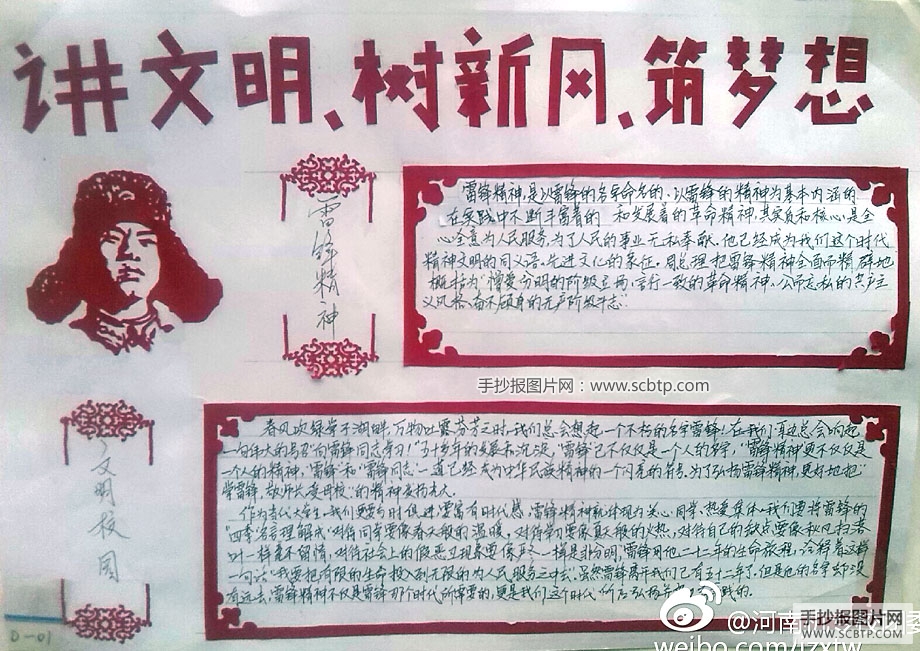 讲文明、树新风、筑梦想
雷锋精神
雷锋精神,是以雷锋的名字命名的、以雷锋的精神为基本内涵的、
在实践中不断丰富着的 和发展着的革命精神,其实质和核心是全
心全意为人民服务,为了人民的事业无私奉献。他已经成为我们这个时代
精神文明的同义语、先进文化的象征。周总理把雷锋精神全面而精辟地
概括为"憎爱分明的阶级立场、言行一致的革命精神、公而忘私的共产主
义风格、奋不顾身的无产阶级斗志"
手抄报图片网:www.scbtp.com
文明校园
春风吹绿 湖畔,万物吐露芬芳之时,我们总会想起一个不朽的名字雷锋!在我们耳边总会响起
一句伟大的号召"向雷锋同志学习!"五十多年的发展和沉淀,"雷锋"已不仅仅是一个人的名字,"雷锋精神"更不仅仅是
一个人的精神,"雷锋"和"雷锋同志"一道已经成为中华民族精神的一个闪亮的符号。为了弘扬雷锋精神,更好地把"
学雷锋,敬师长,爱母校"的精神发扬光大。
作为当代大学生,我们更要与时俱进,富有时代感,雷锋精神就体现为关心同学,热爱集体。我们要将雷锋的
"四季"名言理解成"对待同学要像春天般的温暖,对待学习要像夏天般的火热,对待自己的缺点要像秋风扫落
叶一样毫不留情,对待社会上的假恶丑现象要像 一样是非分明,雷锋用他二十二年的生命旅程,诠释着这样
一句话"我要把有限的生命投入到无限的为人民服务之中去"虽然雷锋离开我们已有五十二年了,但是他的名字却没
有远去,雷锋精神不仅是雷锋那个时代所崇尚的,更是我们这个时代 弘扬 的。
D-01
@河南
weibo.com/jzxtw
手抄报图片网
WWW.SCBTP.COM